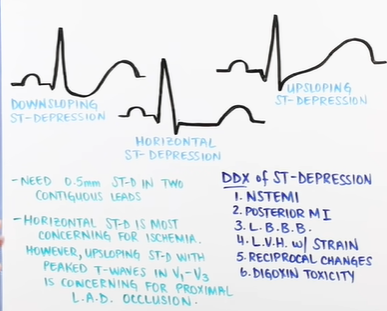 DOWNSLOPING
ST-DEPRESSION
HORIZONTAL
ST-DEPRESSION
UPSLOPING
ST-DEPRESSION
-NEED 0.5mm ST-D IN TWO
CONTIGUOUS LEADS
-HORIZONTAL ST-D IS MOST
CONCERNING FOR ISCHEMIA.
HOWEVER, UPSLOPING ST-D WITH
PEAKED T-WAVES IN V1-V3
IS CONCERNING FOR PROXIMAL
L.A.D. OCCLUSION.
DDX of ST-DEPRESSION
1. NSTEMI
2. POSTERIOR MI
3. L.B.B.B.
4. L.V.H. w/ STRAIN
5. RECIPROCAL CHANGES
6. DIGOXIN TOXICITY